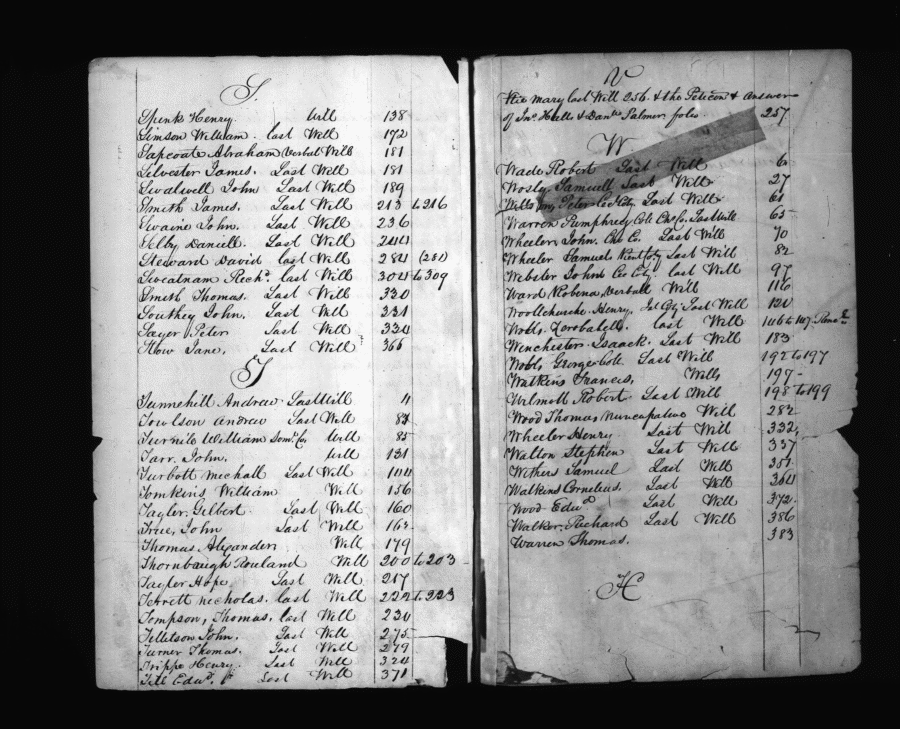 S.
Spink Henry. Will 138
Simson William. last Will 172
Sapcoate Abraham Verbal Will 181
Silvester James. Last Will 181
Sewalwell John Last Will 189
Smith James. Last Will 213 to 216
Swaine John. Last Will 236
Selby Daniell. Last Will 244
Steward David last Will 284 (281)
Sweatnam Rich^d last Will 304 to 309
Smith Thomas. Last Will 330
Southey John. Last Will 331
Sayer Peter Last Will 334
Stow Jane. Last Will 366
T
Tunnehill Andrew Last Will 4
Towlson Andrew Last Will 84
Turnile William Som. Co. Will 85
Tarr. John. Will 131
Turbott Michall Last Will 144
Tomkins William Will 156
Tayler, Gilbert. Last Will 160
True, John Last Will 165
Thomas, Alexander Will 179
Thornbaugh Rouland Will 200 to 203
Tayler Hope. Last Will 217
Terrett Nicholas. Last Will 222 to 223
Tompson, Thomas. last Will 230
Tilletson John. Last Will 275
Turner Thomas. Last Will 279
Trippe Henry. Last Will 324
Till Edw^d. Last Will 371
V
Mary last Will 256. & the Peticon & Answer
of Jno. Hall & Dan^l Palmer folio. 257
W.
Wade Robert Last Will 6
Wosly. Samuell Last Will 27
Peter Last Will 61
Warren Humphrey Co. Last Will 65
Wheeler, John. Cha Co. Last Will 70
Wheeler Samuel Kent Co. Last Will 82
Webster John Co. last Will 97
Ward Robena, Verball Will 116
Woollchurche Henry, Last Will 120
Wells Zorobabell. last Will 146 to 147
Winchester Isaack. Last Will 183
Wobb, George Last Will 192 to 197
Watkins Francis. Will 197
Wilmott Robert Last Will 198 to 199
Wood Thomas, Nuncupative Will 282
Wheeler Henry Last Will 332
Walton Stephen Last Will 337
Withers Samuel Last Will 351
Watkins Cornelius. Last Will 364
Wood Edw^d Last Will 372
Walker, Richard Last Will 386
Warren Thomas. 383
H